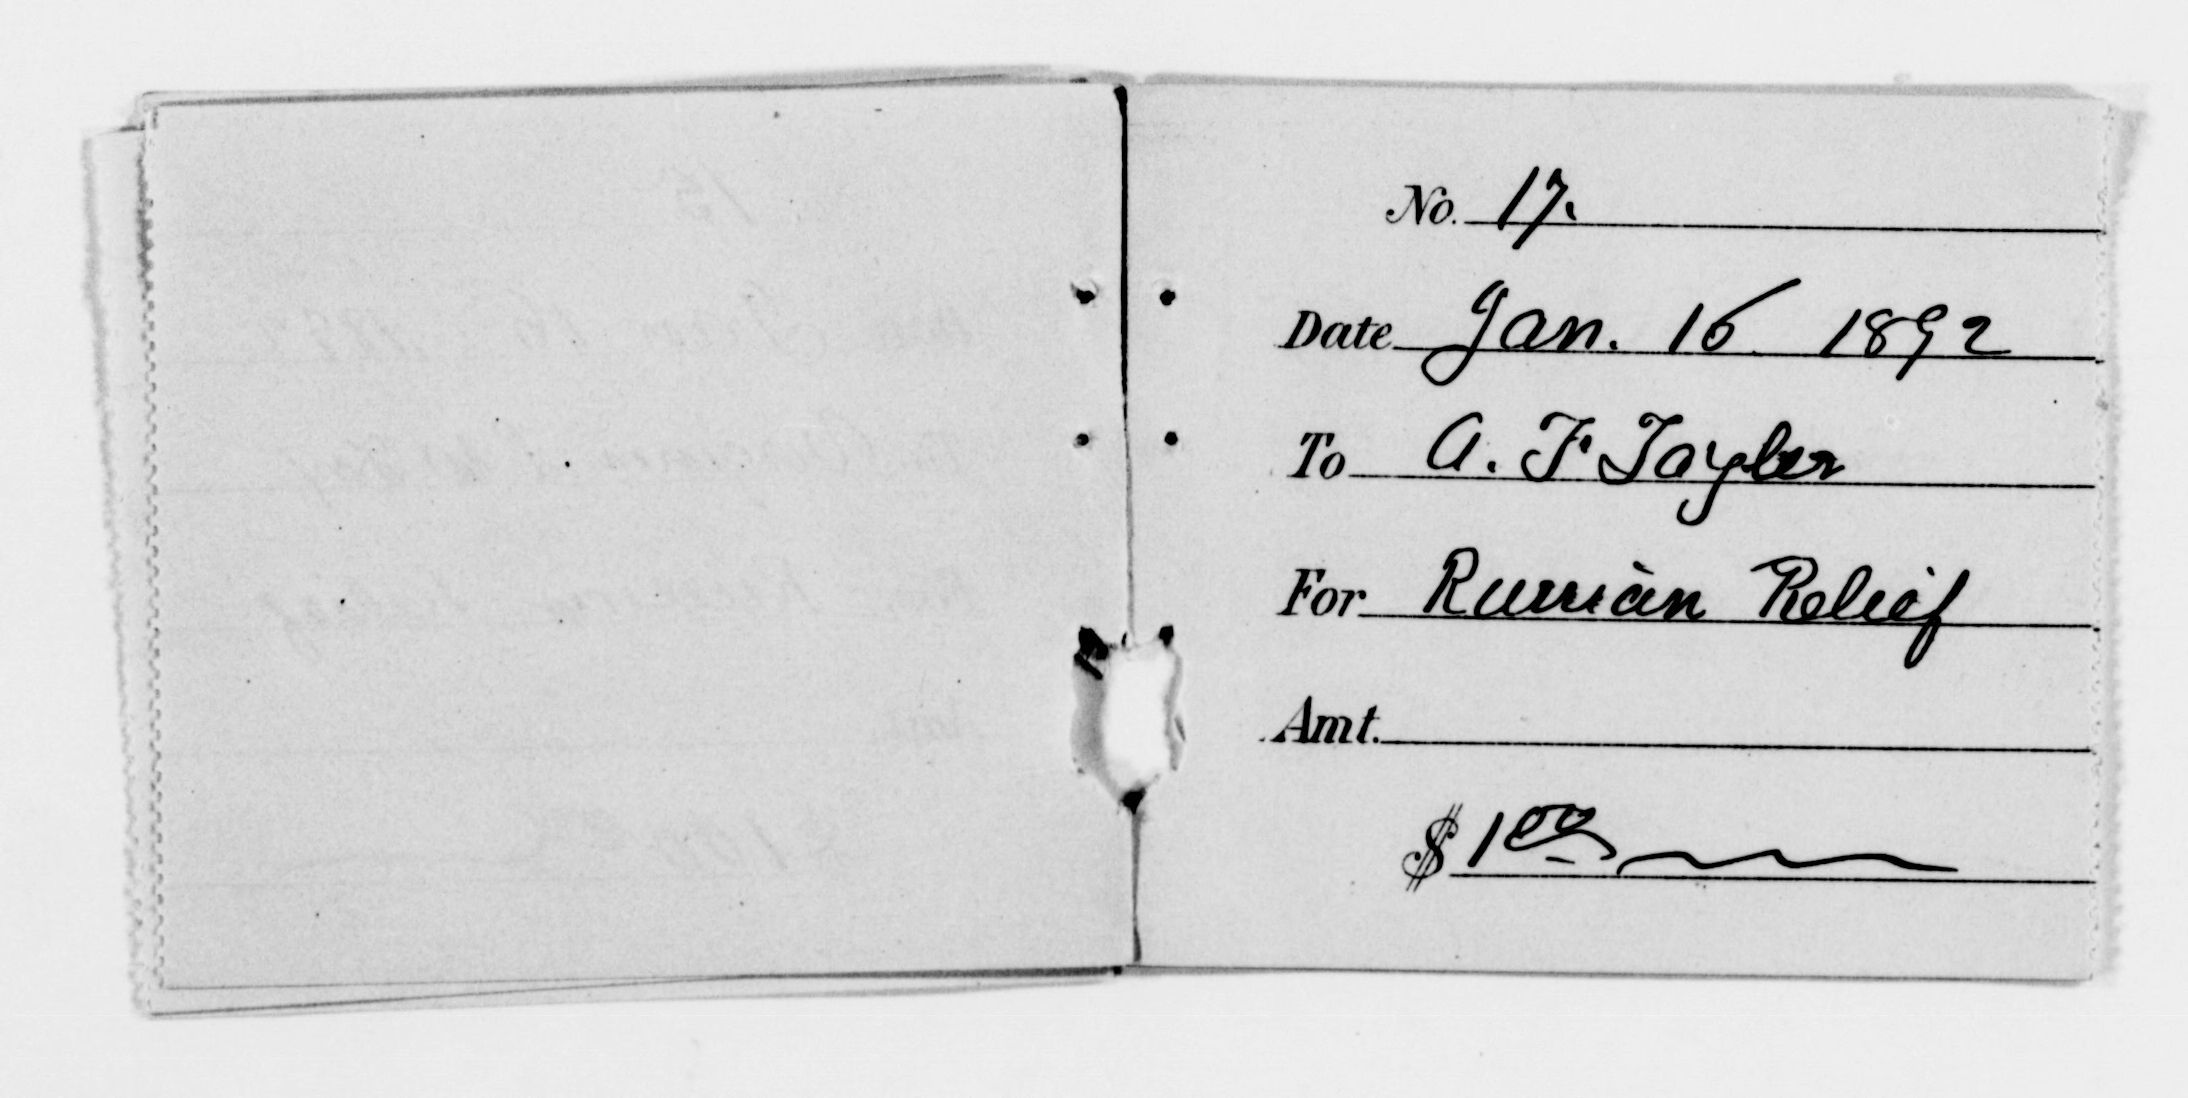 No. 17.
Date Jan. 16 1892
To A. F. Tayler
For Russian Relief
Amt.
$ 1 00